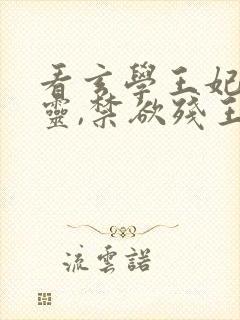 看玄學王妃
靈,禁欲殘王
流雲諾